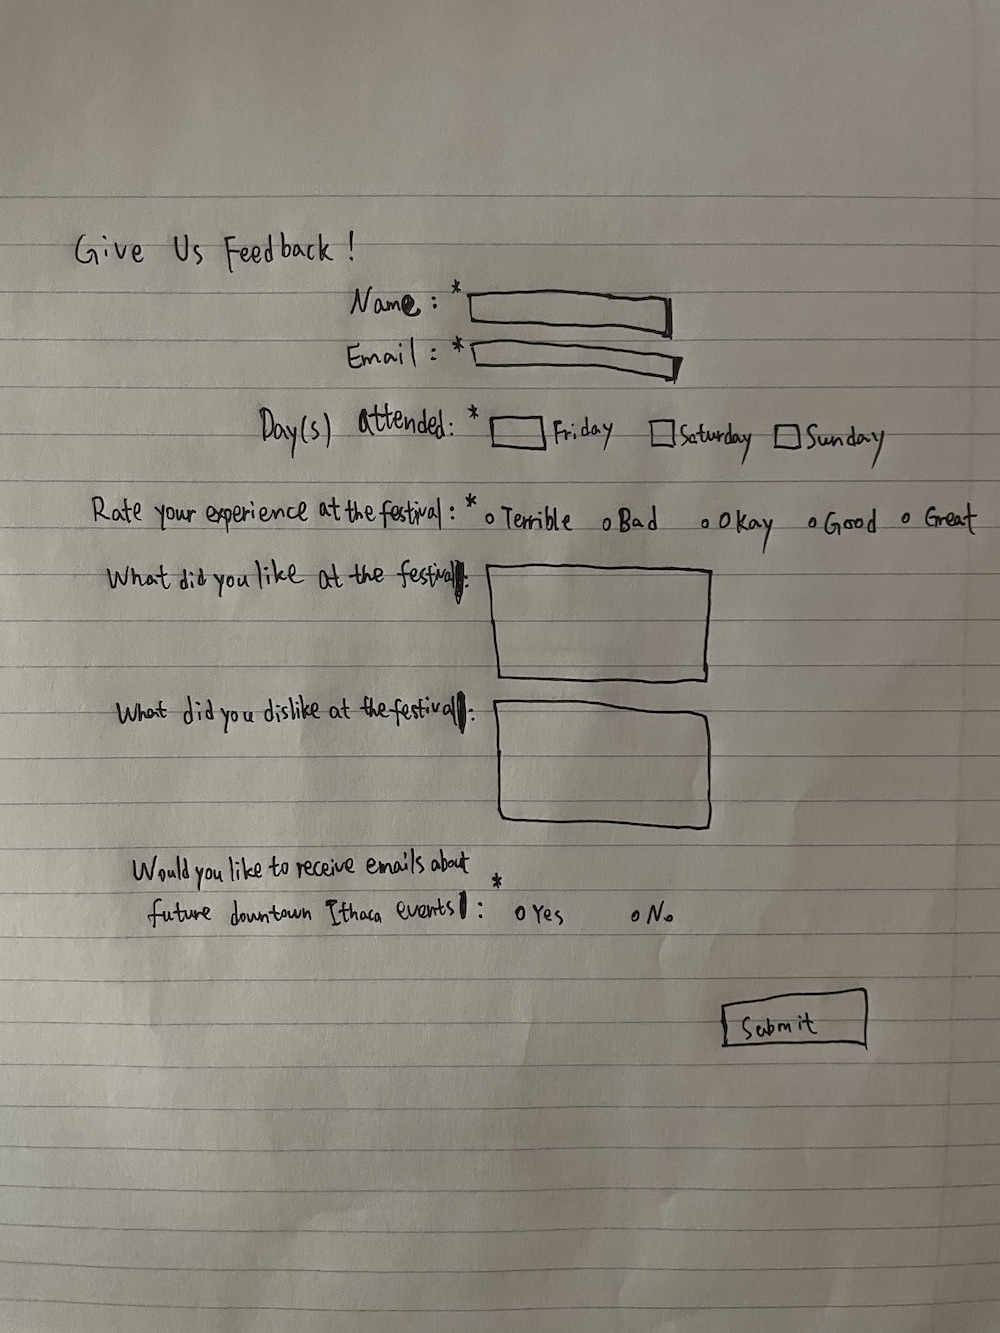 Give Us Feedback!
Name: *
Email: *
Day(s) attended: * Friday Saturday Sunday
Rate your experience at the festival: * Terrible Bad Okay Good Great
What did you like at the festival:
What did you dislike at the festival:
Would you like to receive emails about
future downtown Ithaca events: * Yes No
Submit